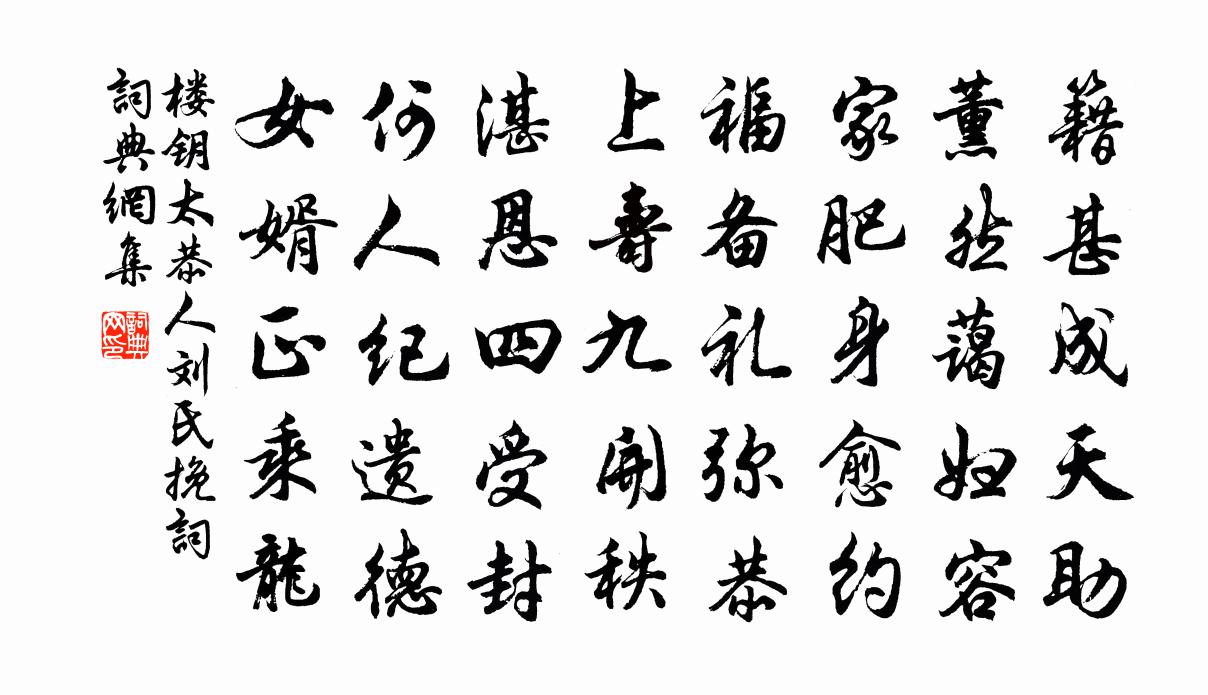 籍甚成天助
薰然蔼妇容
家肥身愈约
福备礼弥恭
上壽九開秩
湛恩四受封
何人纪遗德
女婿正乘龍
楼钥太恭人刘氏挽詞
詞典網集
詞典網印